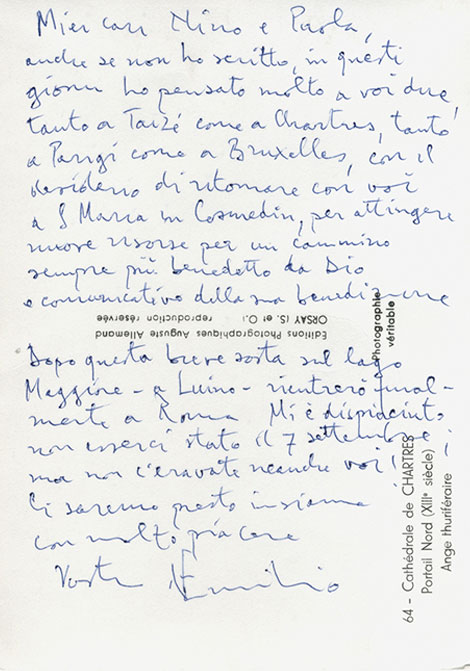 Miei cari Nino e Paola,
anche se non ho scritto, in questi
giorni ho pensato molto a voi due,
tanto a Taizé come a Chartres, tanto
a Parigi come a Bruxelles, con il
desiderio di ritornare con voi
a S Maria in Cosmedin, per attingere
nuove risorse per un cammino
sempre più benedetto da Dio
e comunicativo della sua benedizione
Dopo questa breve sosta sul lago
Maggiore - a Luino - rientrerò final-
mente a Roma Mi è dispiaciuto
non esserci stato il 7 settembre
ma non c'eravate neanche voi!
Ci saremo presto insieme
con molto piacere
Vostro Emilio
Editions Photographiques Auguste Allemand
ORSAY (S. et O.) reproduction réservée
Photographie
véritable
64 - Cathédrale de CHARTRES
Portail Nord (XIIIᵉ siècle)
Ange thuriféraire